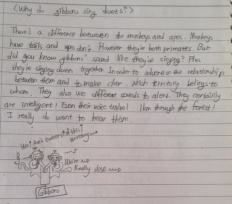 (Why do gibbons sing duets?)
There's a difference between do monkeys and apes. Monkeys
have tails and apes don't. However they're both primates. But
did you know gibbons' sound like they're singing? Plus
they're singing duets together. In order to the relationship
between them and to make clear which territory belongs to
whom. They also use different sounds to alert. They certainly
are intelligent! Even their voice called through the forest!
I really do want to hear them.
We're up
Really close up
Gibbons